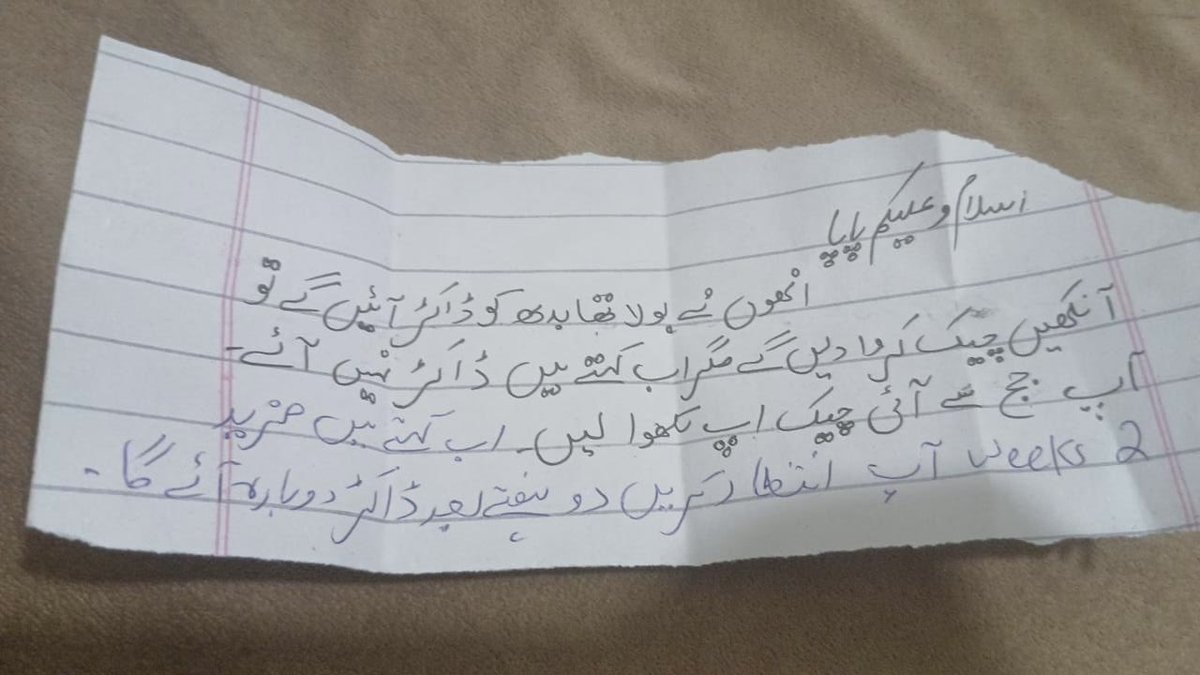 اسلام وعلیکم پاپا
انھوں نے بولا تھا بدھ کو ڈاکٹر آئیں گے تو
آنکھیں چیک کروا دیں گے مگر اب کہتے ہیں ڈاکٹر نہیں آئے۔
آپ جج سے آئی چیک اپ لکھوا لیں۔ اب کہتے ہیں مزید
2 weeks آپ انتظار کریں دو ہفتے بعد ڈاکٹر دوبارہ آئے گا۔